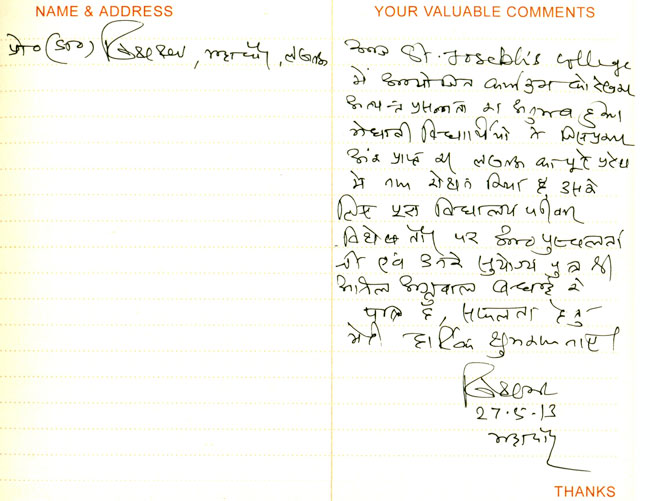 NAME & ADDRESS
YOUR VALUABLE COMMENTS
प्रो० (डा०), महापौर, लखनऊ
आज St. Joseph's College
में आयोजित कार्यक्रम को देखकर
अत्यन्त प्रसन्नता का अनुभव हुआ
मेधावी विद्यार्थियों ने जिस प्रकार
अंक प्राप्त कर लखनऊ का पूरे प्रदेश
में नाम रोशन किया है उसके
लिए पूरा विद्यालय परिवार
विशेष तौर पर
जी एवं उनके सुयोग्य पुत्र श्री
अनिल अग्रवाल बधाई के
पात्र हैं, सफलता हेतु
मेरी हार्दिक शुभकामनाएं।
27.5.13
महापौर
THANKS